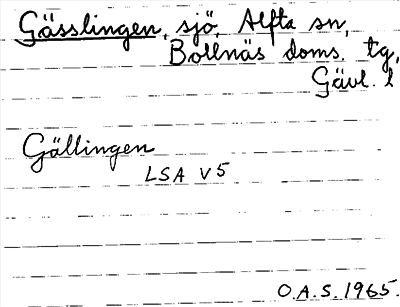 Gässlingen, sjö, Alfta sn,
Bollnäs doms. tg,
Gävl. l
Gällingen
LSA V5
O.A.S. 1965.